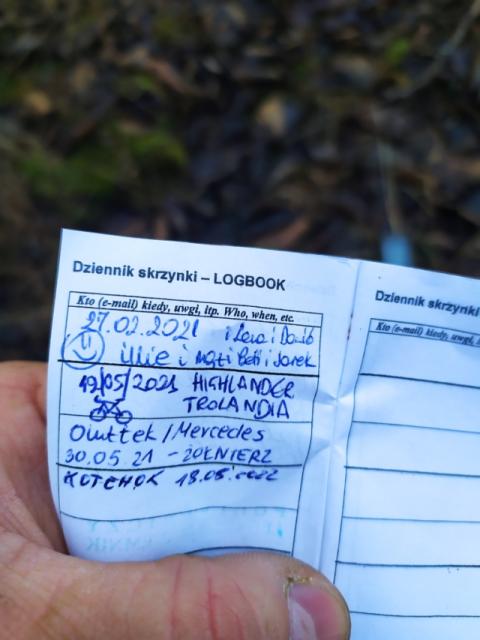 Dziennik skrzynki – LOGBOOK
Kto (e-mail) kiedy, uwgi, itp. Who, when, etc.
27.02.2021 i Lena i Dawid
i i Beti i Jarek
19/05/2021 HIGHLANDER
TROLANDIA
/Mercedes
30.05 21 - ŻOŁNIERZ
KOTEHOK 18.05.2022
Dziennik skrzynki
Kto (e-mail) kiedy, uwgi, itp.